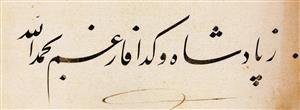 ز پادشاه و گدا فارغم بحمدالله